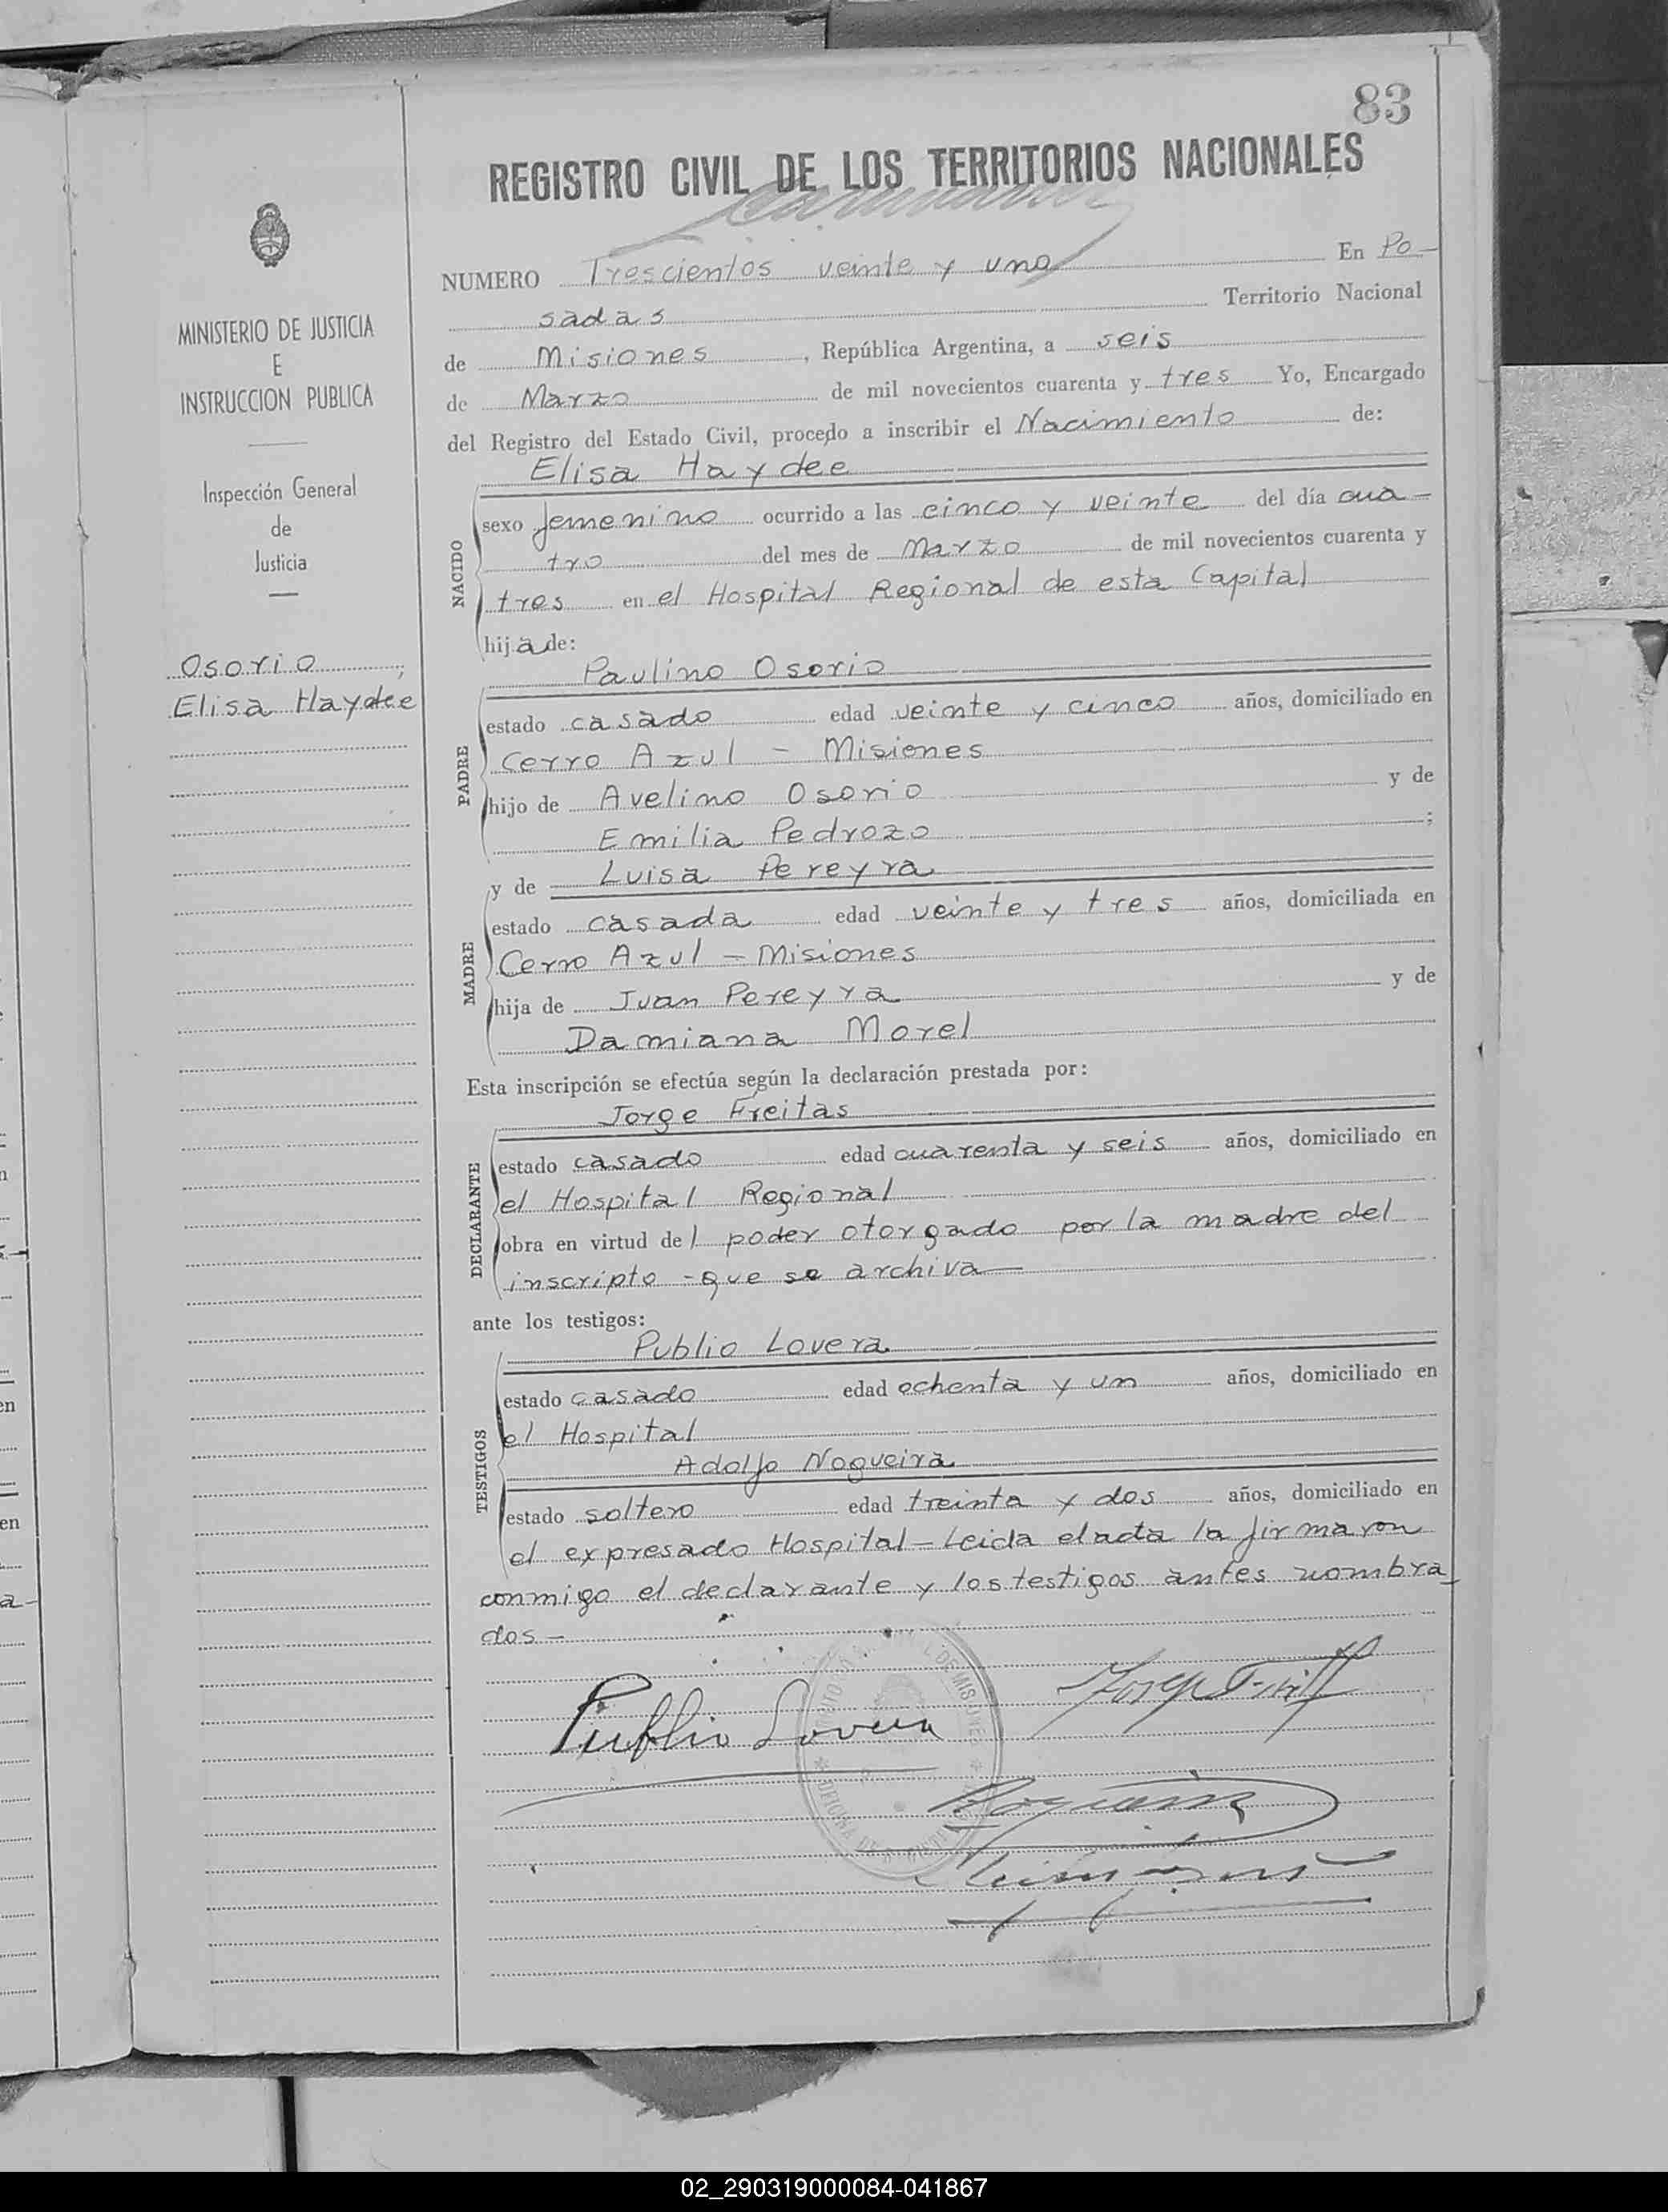 83
REGISTRO CIVIL DE LOS TERRITORIOS NACIONALES
MINISTERIO DE JUSTICIA
E
INSTRUCCION PUBLICA
Inspección General
de
Justicia
Osorio;
Elisa Haydee
NUMERO Trescientos veinte y uno En Po-
sadas Territorio Nacional
de Misiones, República Argentina, a seis
de Marzo de mil novecientos cuarenta y tres Yo, Encargado
del Registro del Estado Civil, procedo a inscribir el Nacimiento de:
Elisa Haydee
NACIDO
sexo femenino ocurrido a las cinco y veinte del día cua-
tro del mes de Marzo de mil novecientos cuarenta y
tres en el Hospital Regional de esta Capital
hija de:
Paulino Osorio
PADRE
estado casado edad veinte y cinco años, domiciliado en
Cerro Azul - Misiones
hijo de Avelino Osorio y de
Emilia Pedrozo;
y de Luisa Pereyra
MADRE
estado casada edad veinte y tres años, domiciliada en
Cerro Azul - Misiones
hija de Juan Pereyra y de
Damiana Morel
Esta inscripción se efectúa según la declaración prestada por:
Jorge Freitas
DECLARANTE
estado casado edad cuarenta y seis años, domiciliado en
el Hospital Regional
obra en virtud del poder otorgado por la madre del
inscripto - que se archiva -
ante los testigos:
Publio Lovera
TESTIGOS
estado casado edad ochenta y un años, domiciliado en
el Hospital
Adolfo Nogueira
estado soltero edad treinta y dos años, domiciliado en
el expresado Hospital - Leida el acta la firmaron
conmigo el declarante y los testigos antes nombra-
dos -
Publio Lovera
02_290319000084-041867